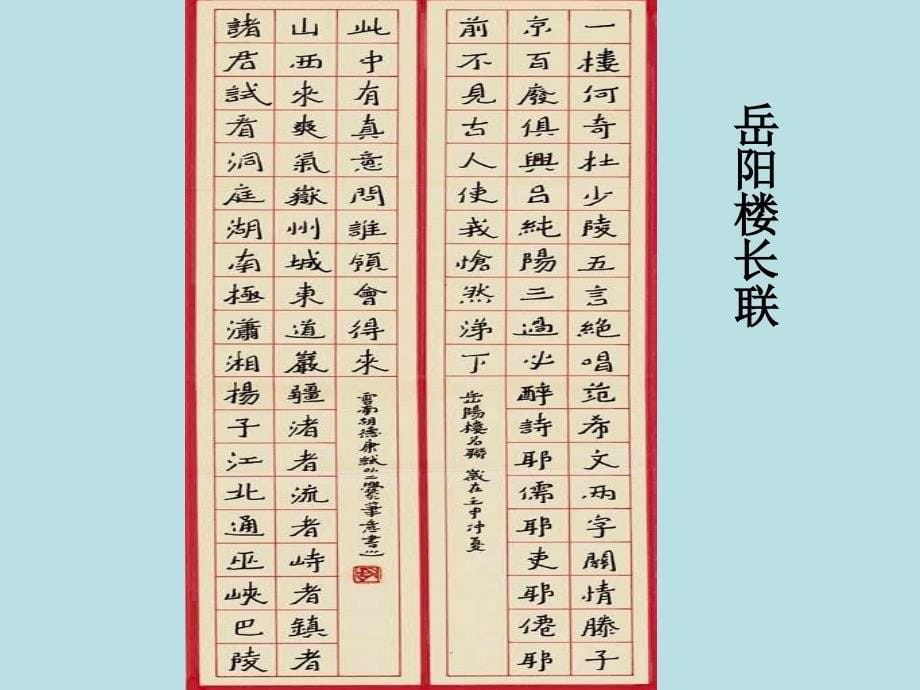 岳阳楼长联
一樓何奇杜少陵五言絕唱范希文兩字關情滕子
京百廢俱興呂純陽三過必醉詩耶儒耶吏耶僊耶
前不見古人使我愴然涕下
岳陽樓名聯 歲在壬申仲夏
諸君試看洞庭湖南極瀟湘楊子江北通巫峽巴陵
山西來爽氣嶽州城東道巖疆渚者流者峙者鎮者
此中有真意問誰領會得來
雲南胡德康試以二爨筆意書